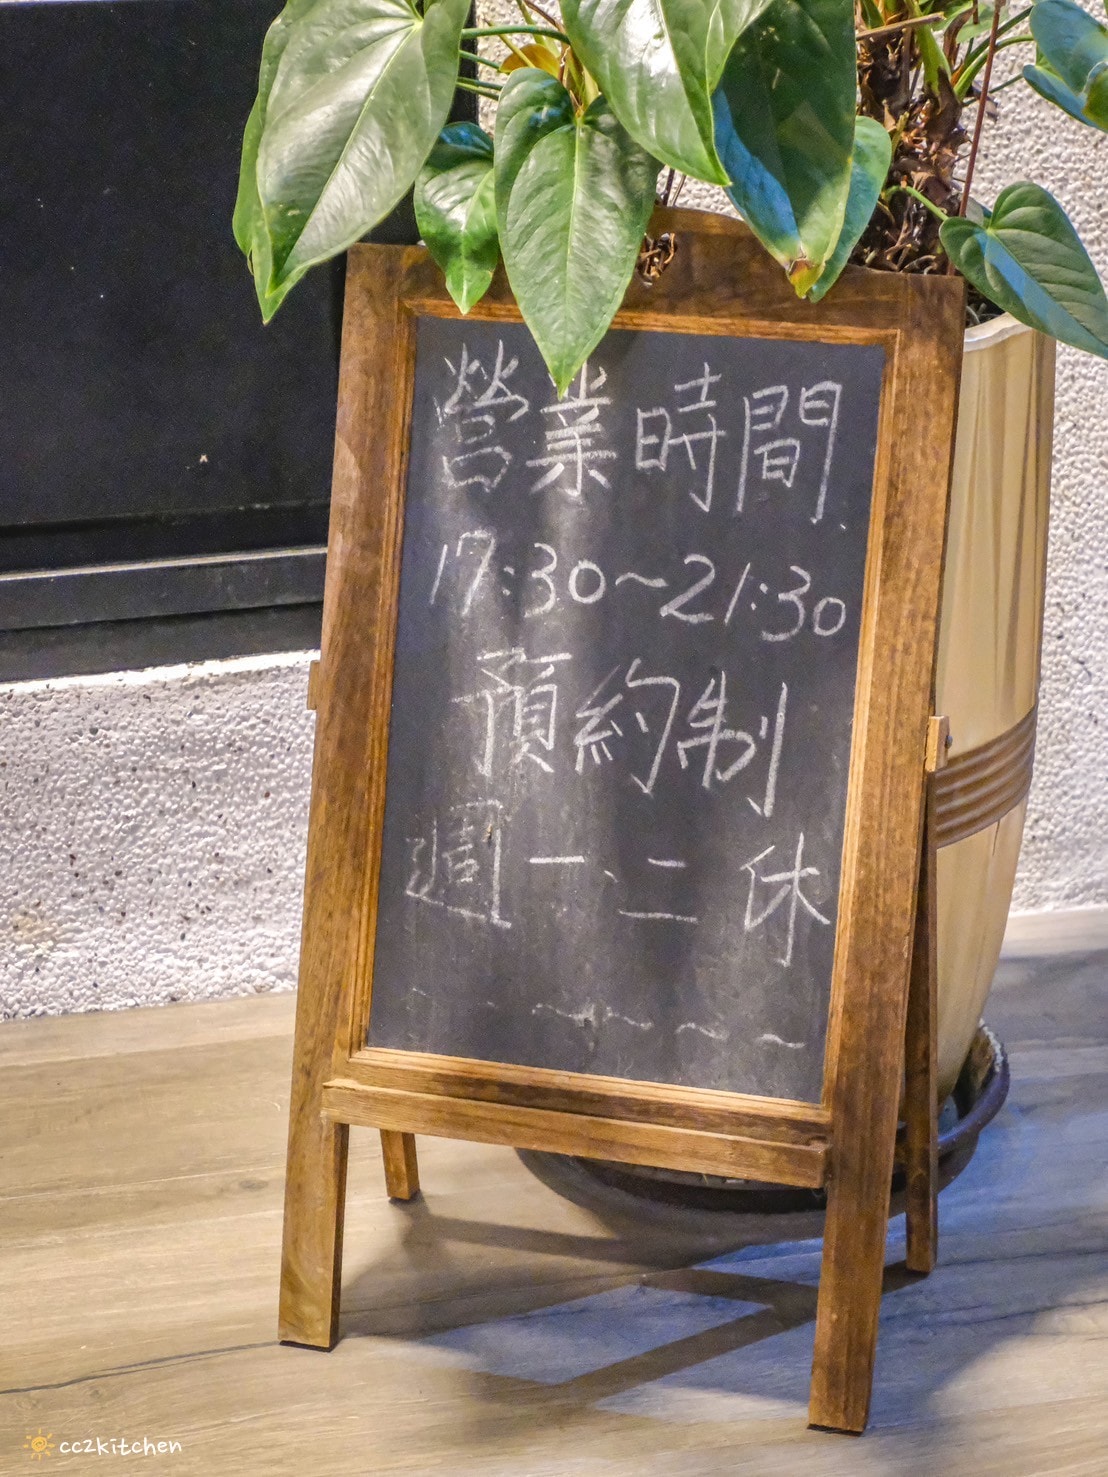 營業時間
17:30~21:30
預約制
週一、二休
cc2kitchen